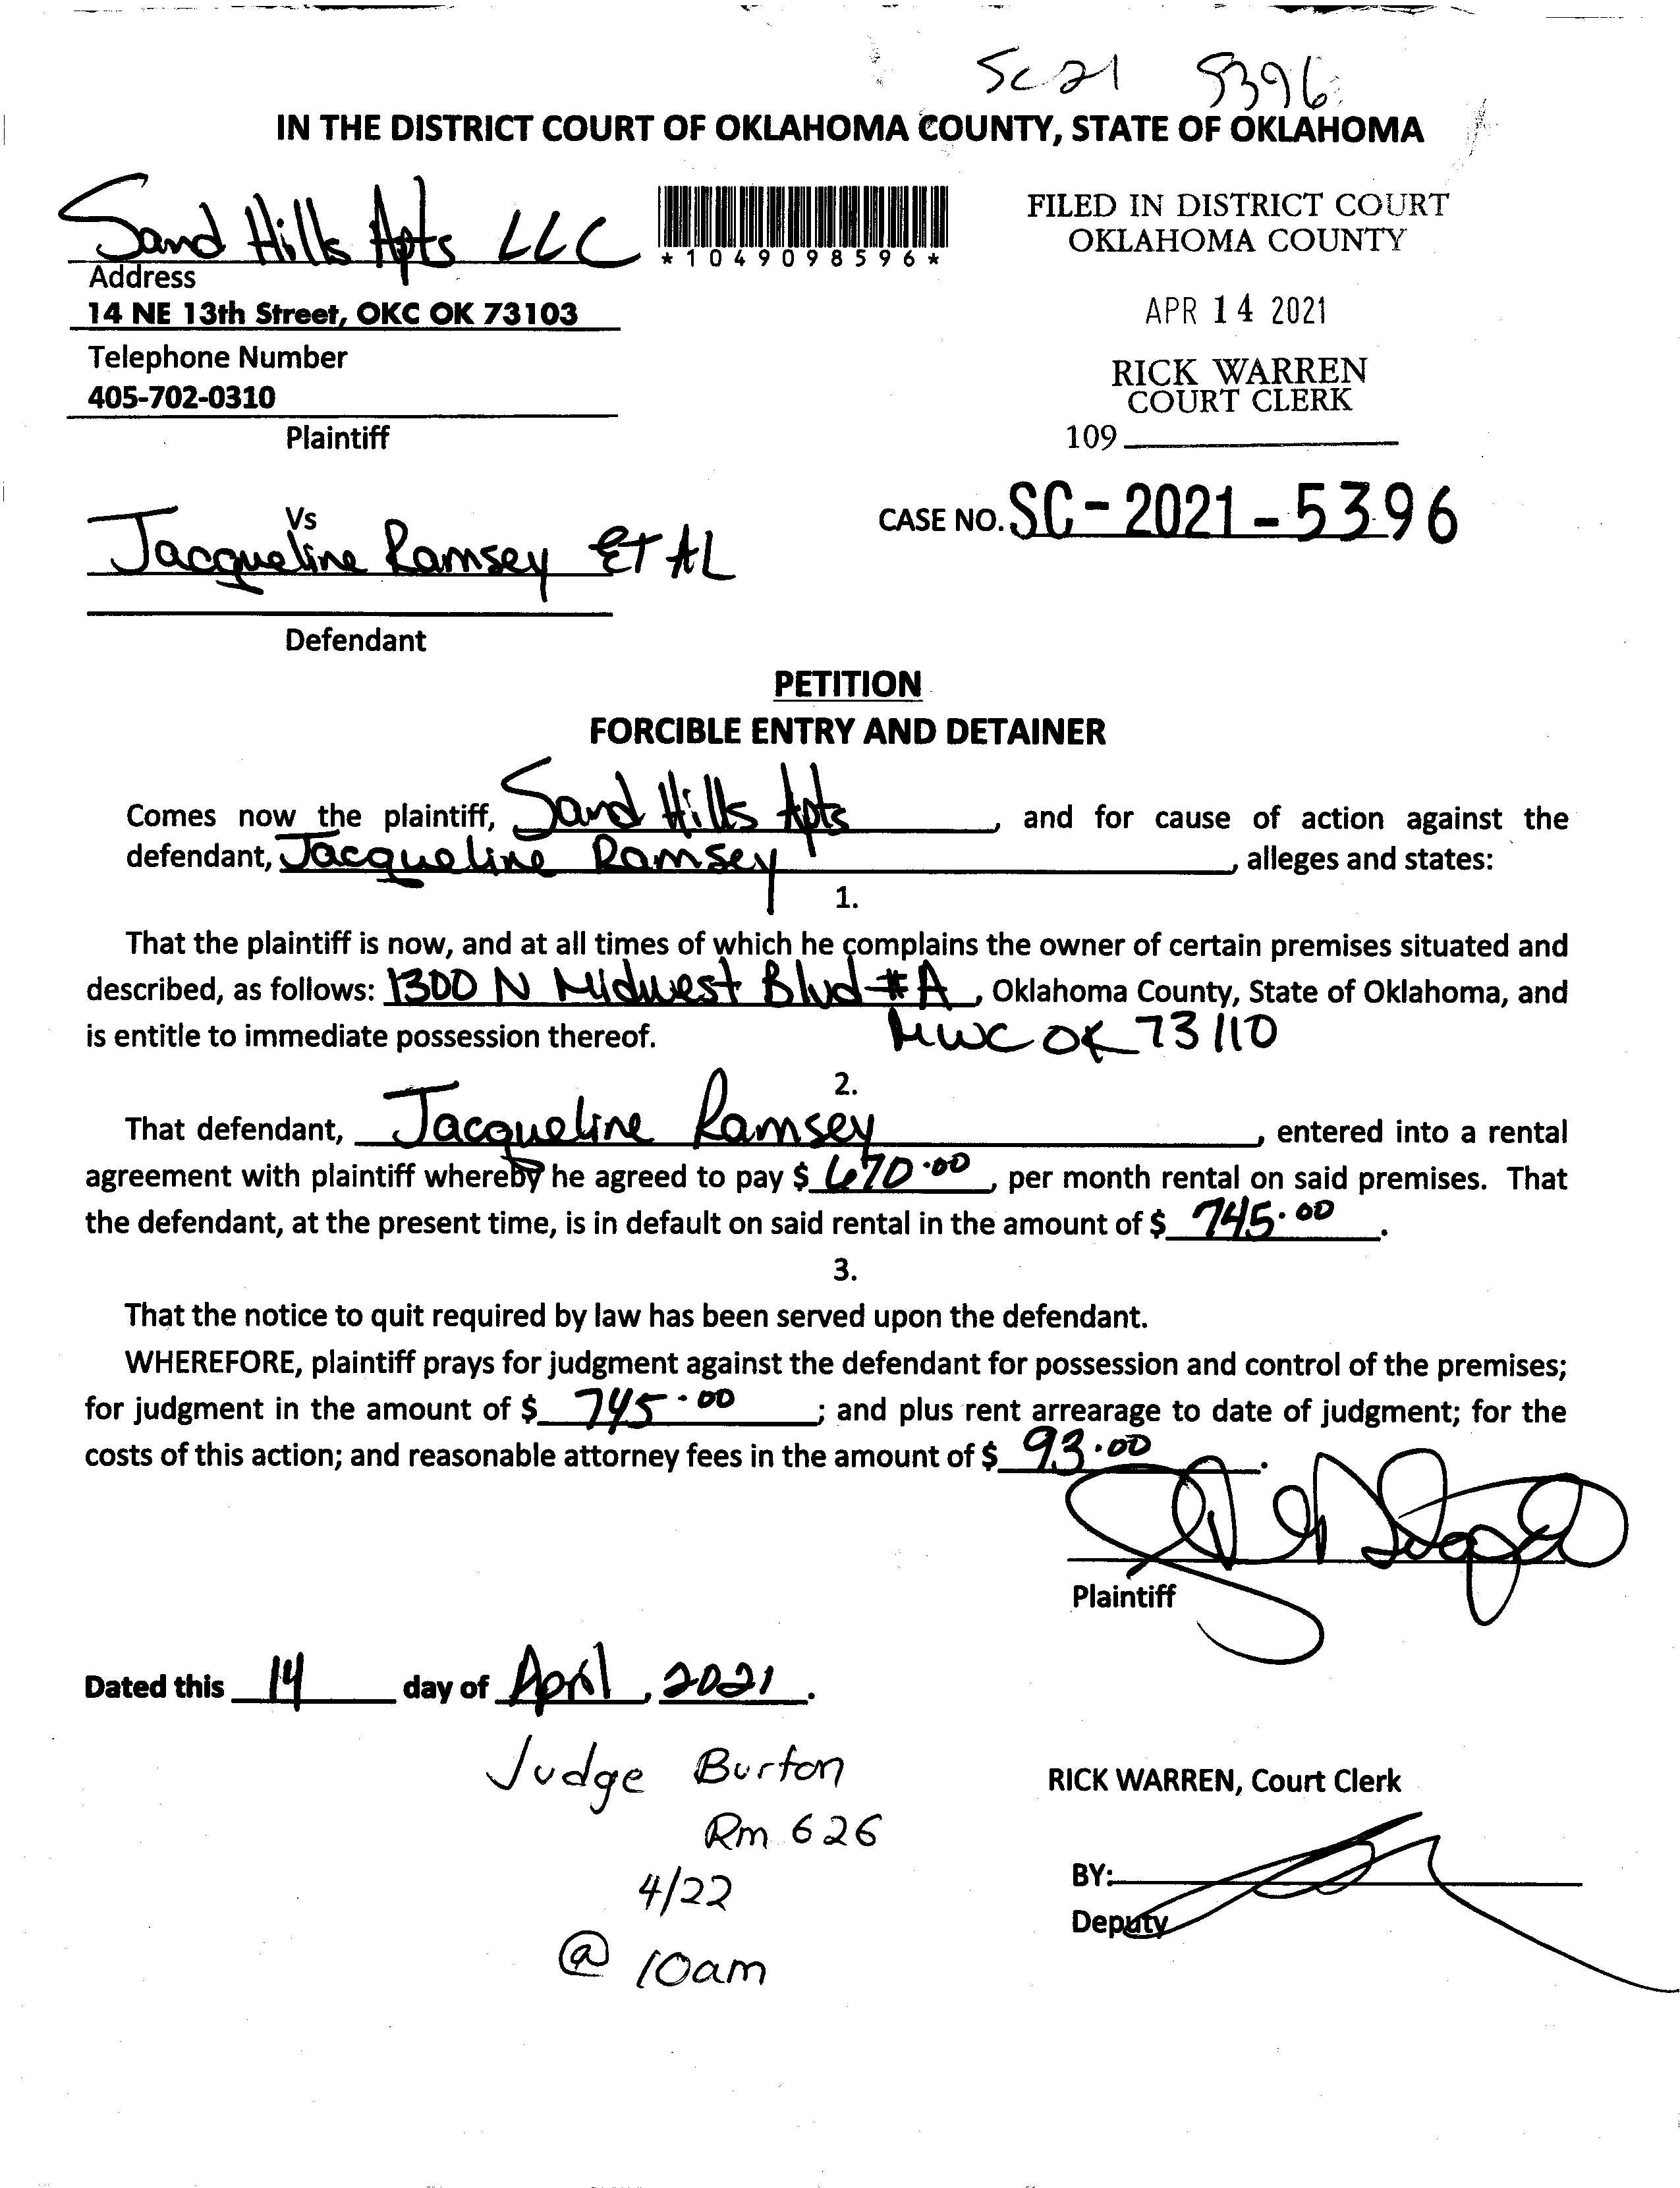 Sc21 5396
IN THE DISTRICT COURT OF OKLAHOMA COUNTY, STATE OF OKLAHOMA
Sand Hills Apts LLC
*1049098596*
Address
14 NE 13th Street, OKC OK 73103
Telephone Number
405-702-0310
Plaintiff
FILED IN DISTRICT COURT
OKLAHOMA COUNTY
APR 14 2021
RICK WARREN
COURT CLERK
109
Vs
Jacqueline Ramsey ET AL
Defendant
CASE NO. SC-2021-5396
PETITION
FORCIBLE ENTRY AND DETAINER
Comes now the plaintiff, Sand Hills Apts, and for cause of action against the
defendant, Jacqueline Ramsey, alleges and states:
1.
That the plaintiff is now, and at all times of which he complains the owner of certain premises situated and
described, as follows: 1300 N Midwest Blvd #A, Oklahoma County, State of Oklahoma, and
is entitle to immediate possession thereof. MWC OK 73110
2.
That defendant, Jacqueline Ramsey, entered into a rental
agreement with plaintiff whereby he agreed to pay $ 670.00, per month rental on said premises. That
the defendant, at the present time, is in default on said rental in the amount of $ 745.00.
3.
That the notice to quit required by law has been served upon the defendant.
WHEREFORE, plaintiff prays for judgment against the defendant for possession and control of the premises;
for judgment in the amount of $ 745.00; and plus rent arrearage to date of judgment; for the
costs of this action; and reasonable attorney fees in the amount of $ 93.00.
Plaintiff
Dated this 14 day of April, 2021.
Judge Burton
Rm 626
4/22
@ 10am
RICK WARREN, Court Clerk
BY:
Deputy